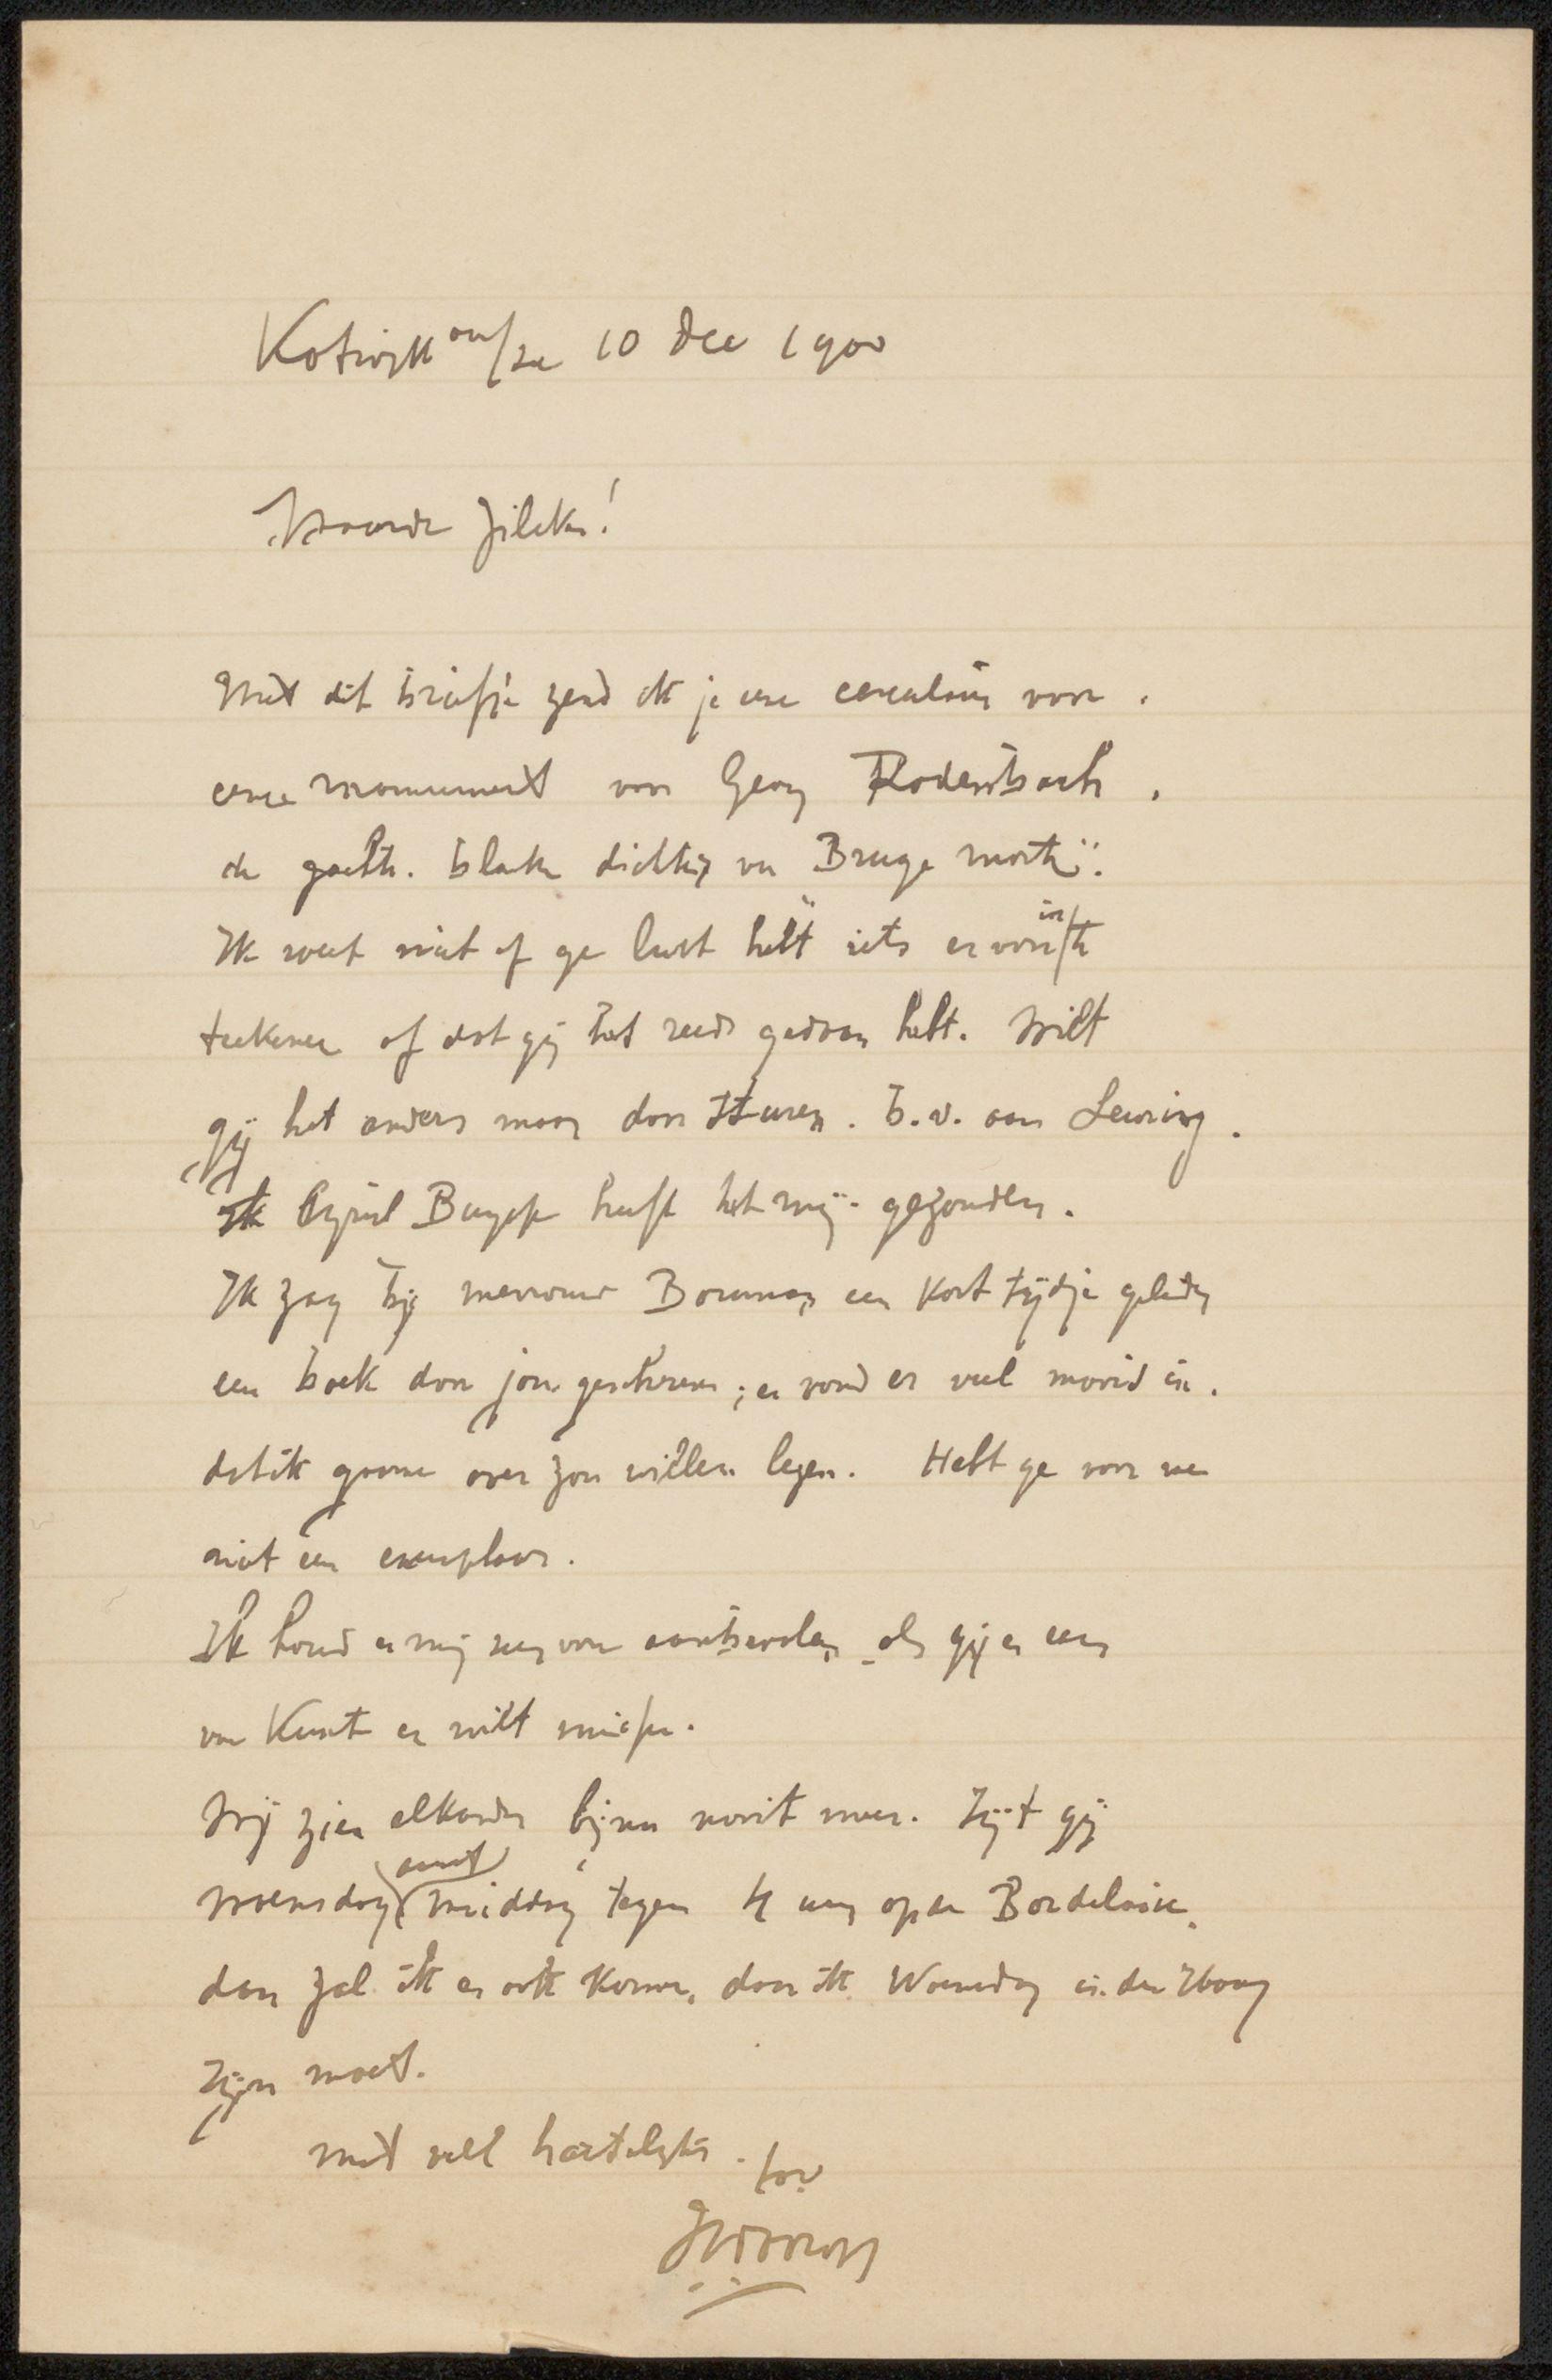 Katwijk aan/Zee 10 Dec 1900
Waarde Zilcken!
Met dit briefje zend ik je een circulair voor
eene monument voor Georg Rodenbach.
de zachte. bleeke dichter van Bruge morte".
Ik weet niet of ge lust hebt iets er voor in/te
teekenen of dat gij het reeds gedaan hebt. Wilt
gij het anders maar door sturen. b.v. aan
Cyriel Buysse heeft het mij gezonden.
Ik zag bij mevrouw een kort tijdje geleden
een boek door jou geschreven; en vond er veel moois in.
dat ik gaarne over zou willen lezen. Hebt ge voor me
niet een exemplaar.
Ik houd er mij zeer voor aanbevolen als gij er een
van kunt en wilt missen.
Wij zien elkander bijna nooit meer. Zijt gij
Woensdag middag tegen 4 uur op de Bordelaise
dan zal ik er ook komen, daar ik Woensdag in den Haag
zijn moet.
met veel hartelijks. tov